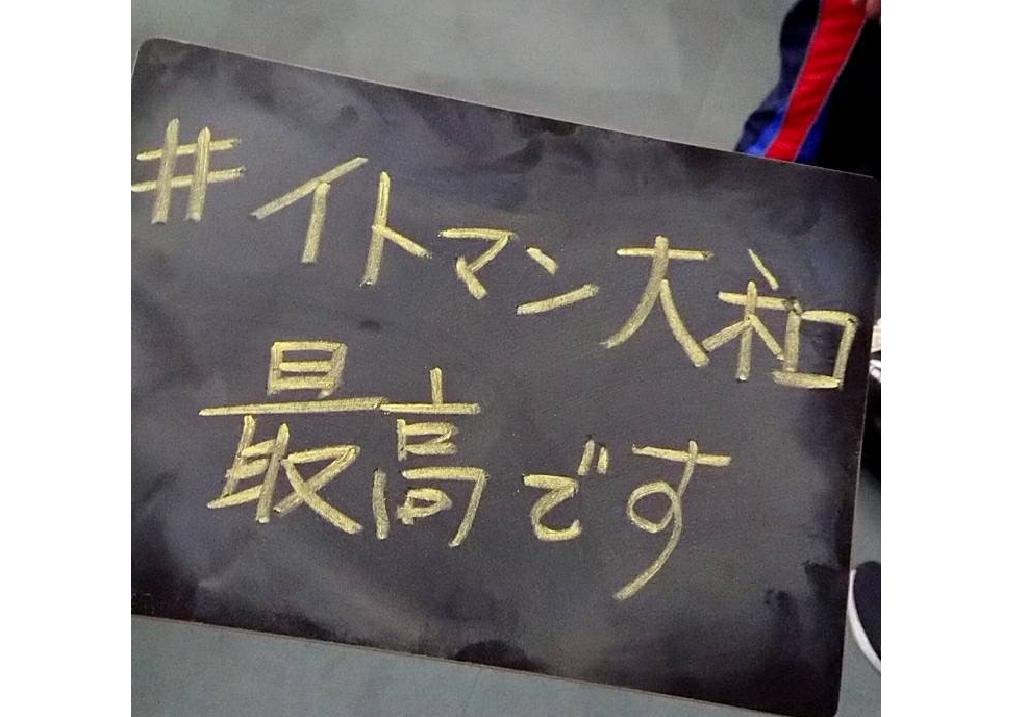 #イトマン大和
最高です